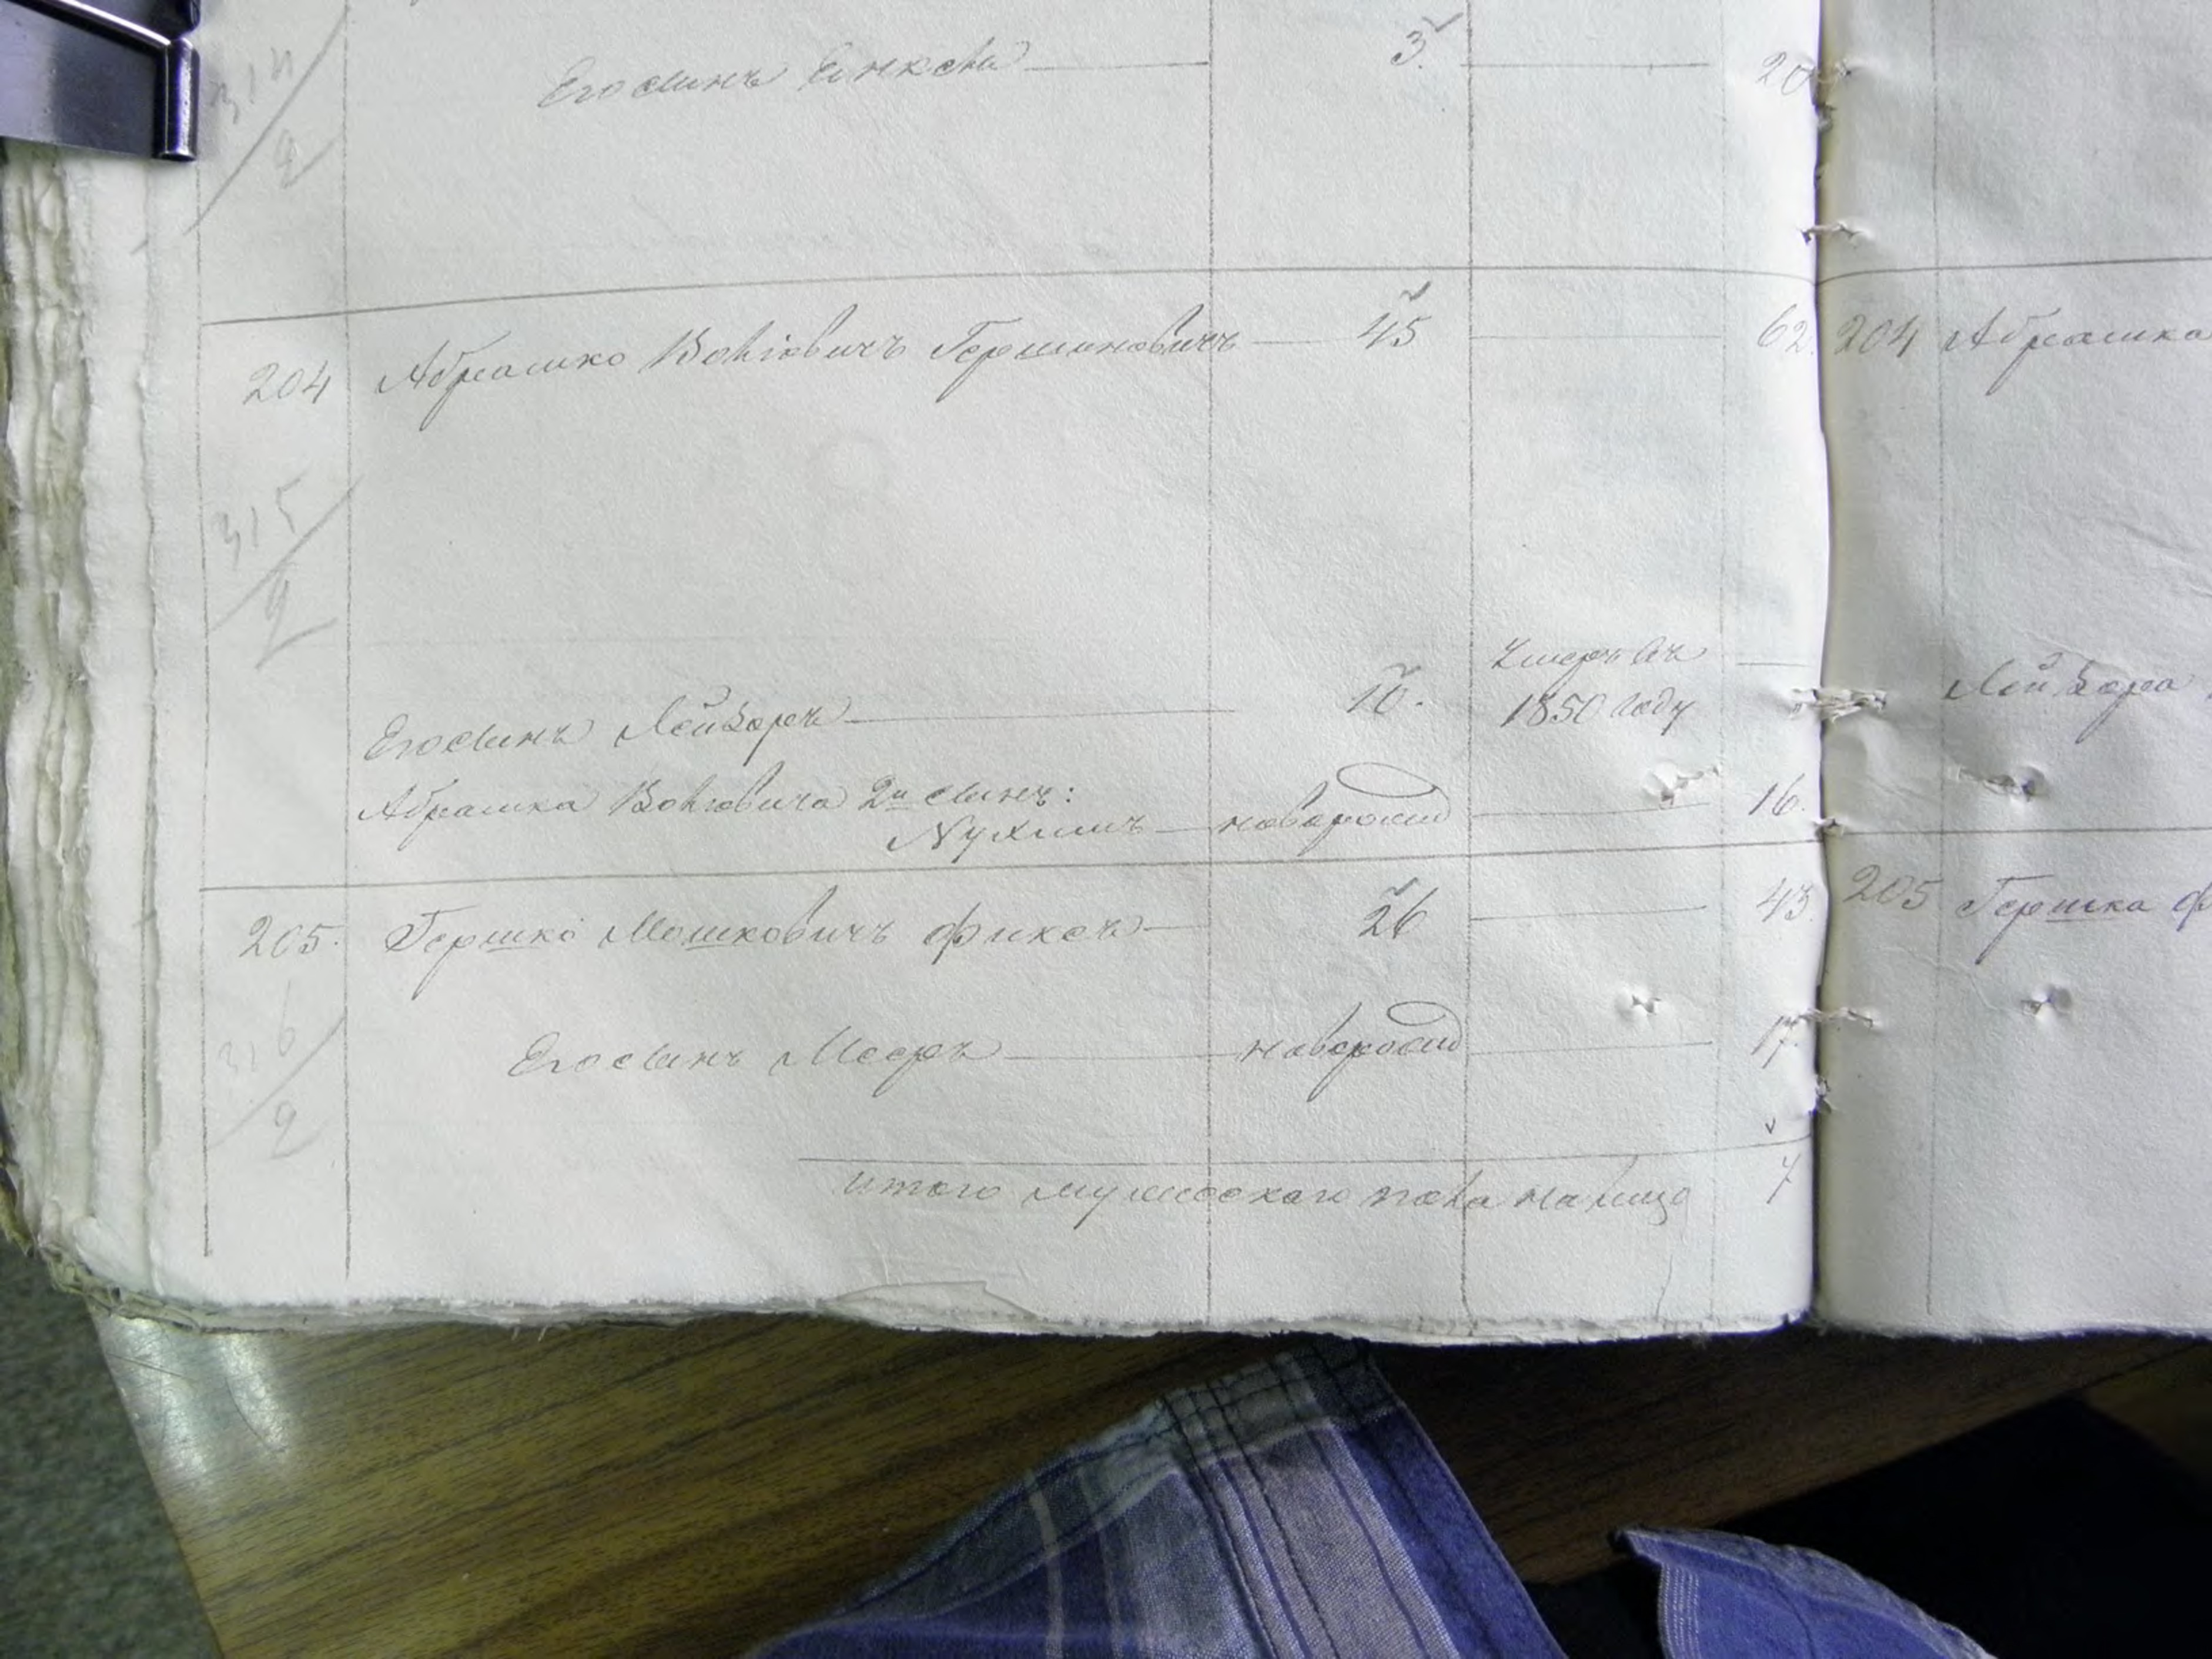 314/2 Его сынъ Янкель 3. 20
204 Абрашко Волiовичъ Гершиновичъ 45 62. 204 Абрашка
315/2
умеръ въ
Его сынъ Лейзоръ 10. 1850 году Лейзора
Абрашка Волiовича 2й сынъ:
Нухимъ новорожд 16.
205. Гершко Мошковичъ Фиксъ 26 43. 205 Гершка Ф
316/2 Его сынъ Мееръ новорожд 17.
итого мужескаго пола на лицо 7